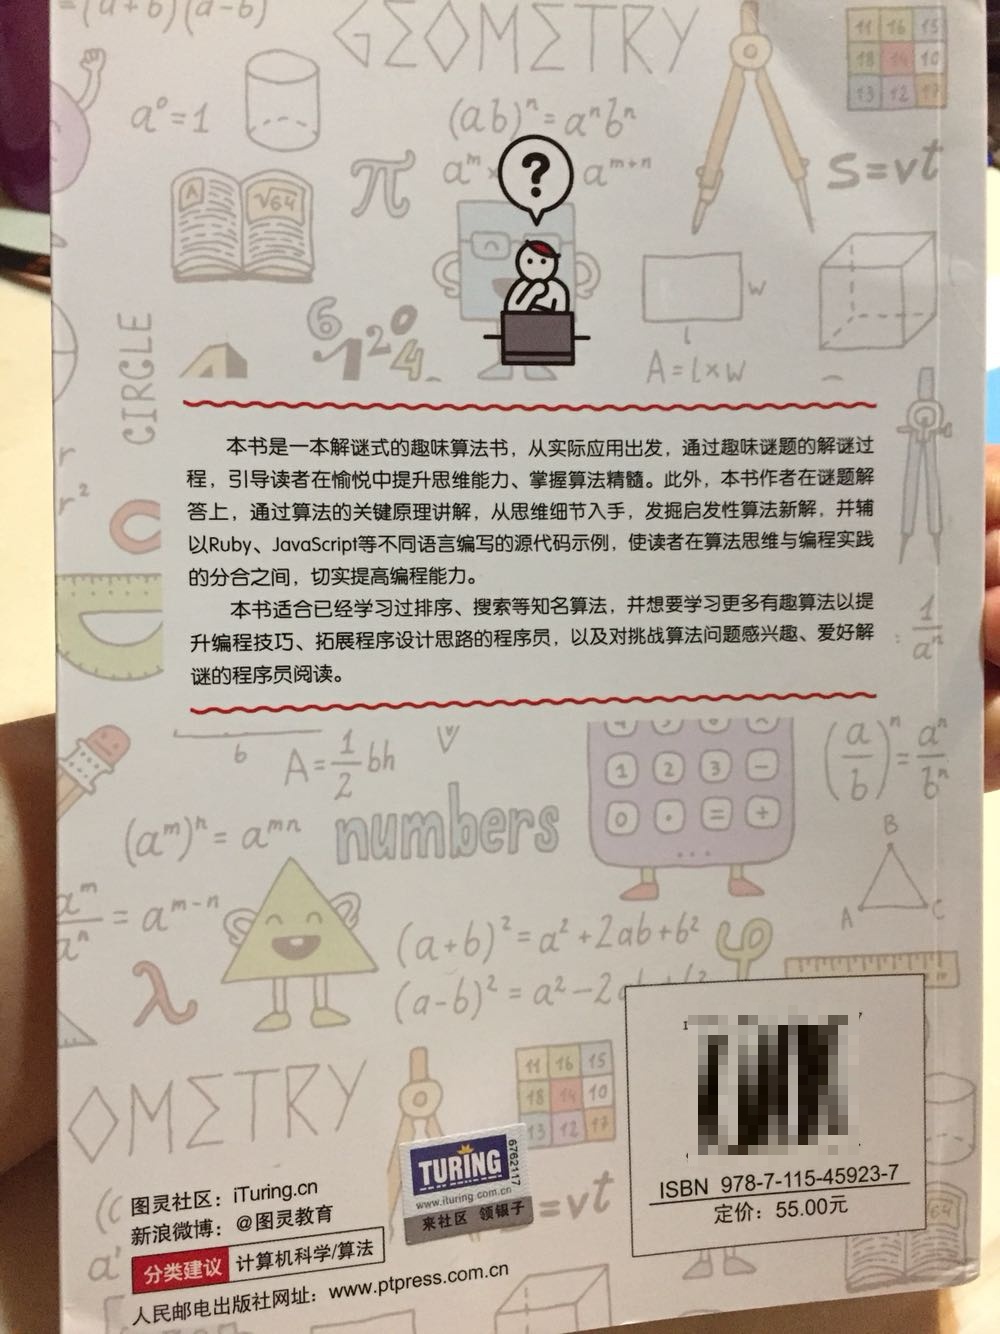 =(a+b)(a-b)
GEOMETRY
11 16 15
18 14 10
13 12 17
a⁰=1
(ab)ⁿ=aⁿbⁿ
aᵐ
aᵐ⁺ⁿ
?
π
S=vt
A
√64
W
l
A=l×w
6 1 2 0 4
CIRCLE
r
r²
本书是一本解谜式的趣味算法书，从实际应用出发，通过趣味谜题的解谜过
程，引导读者在愉悦中提升思维能力、掌握算法精髓。此外，本书作者在谜题解
答上，通过算法的关键原理讲解，从思维细节入手，发掘启发性算法新解，并辅
以Ruby、JavaScript等不同语言编写的源代码示例，使读者在算法思维与编程实践
的分合之间，切实提高编程能力。
本书适合已经学习过排序、搜索等知名算法，并想要学习更多有趣算法以提
升编程技巧、拓展程序设计思路的程序员，以及对挑战算法问题感兴趣、爱好解
谜的程序员阅读。
1/aⁿ
b
A=1/2bh
1 2 3 −
0 · = +
(a/b)ⁿ=aⁿ/bⁿ
(aᵐ)ⁿ=aᵐⁿ
numbers
B
A
C
aᵐ/aⁿ=aᵐ⁻ⁿ
(a+b)²=a²+2ab+b²
φ
λ
(a-b)²=a²-2
OMETRY
11 16 15
18 14 10
13 12 17
TURING
www.ituring.com.cn
来社区 领银子
6762117
=vt
ISBN 978-7-115-45923-7
定价：55.00元
图灵社区：iTuring.cn
新浪微博：@图灵教育
分类建议 计算机科学/算法
人民邮电出版社网址：www.ptpress.com.cn